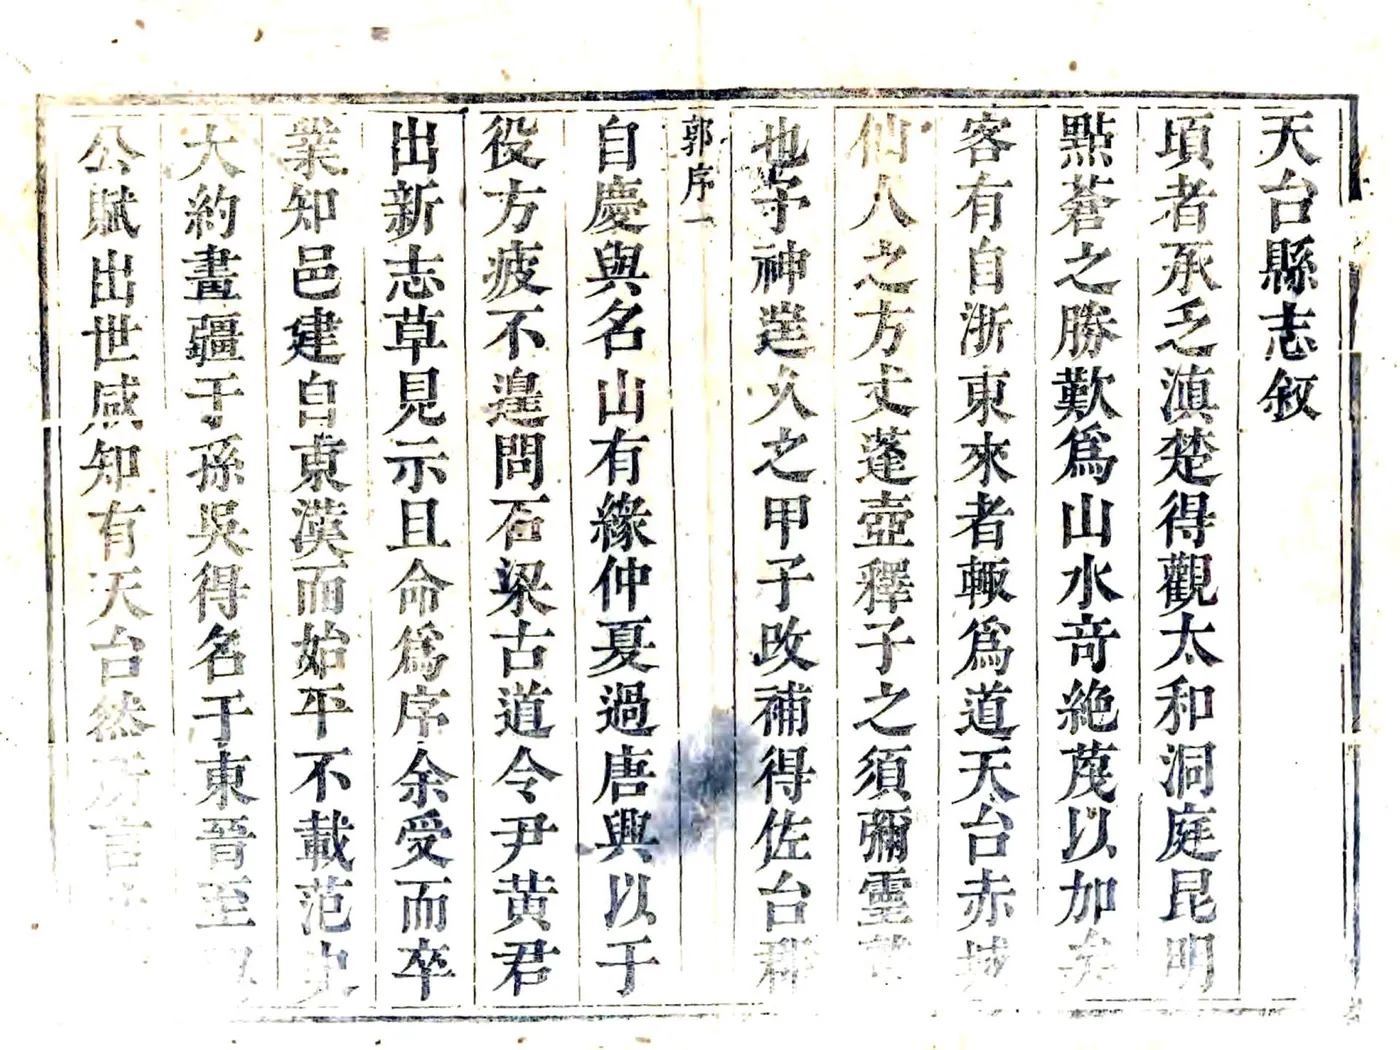 天台縣志敘
頃者承乏滇楚得觀太和洞庭昆明
點蒼之勝歎為山水竒絶蔑以加矣
客有自浙東來者輒為道天台赤城
仙人之方丈蓬壺釋子之須彌靈鷲
也予神遑久之甲子改補得佐台郡
郭序一
自慶與名山有緣仲夏過唐興以于
役方疲不遑問石梁古道令尹黄君
出新志草見示且命為序余受而卒
業知邑建自東漢而始平不載范史
大約畫疆于孫吳得名于東晉至
公賦出世咸知有天台然所言